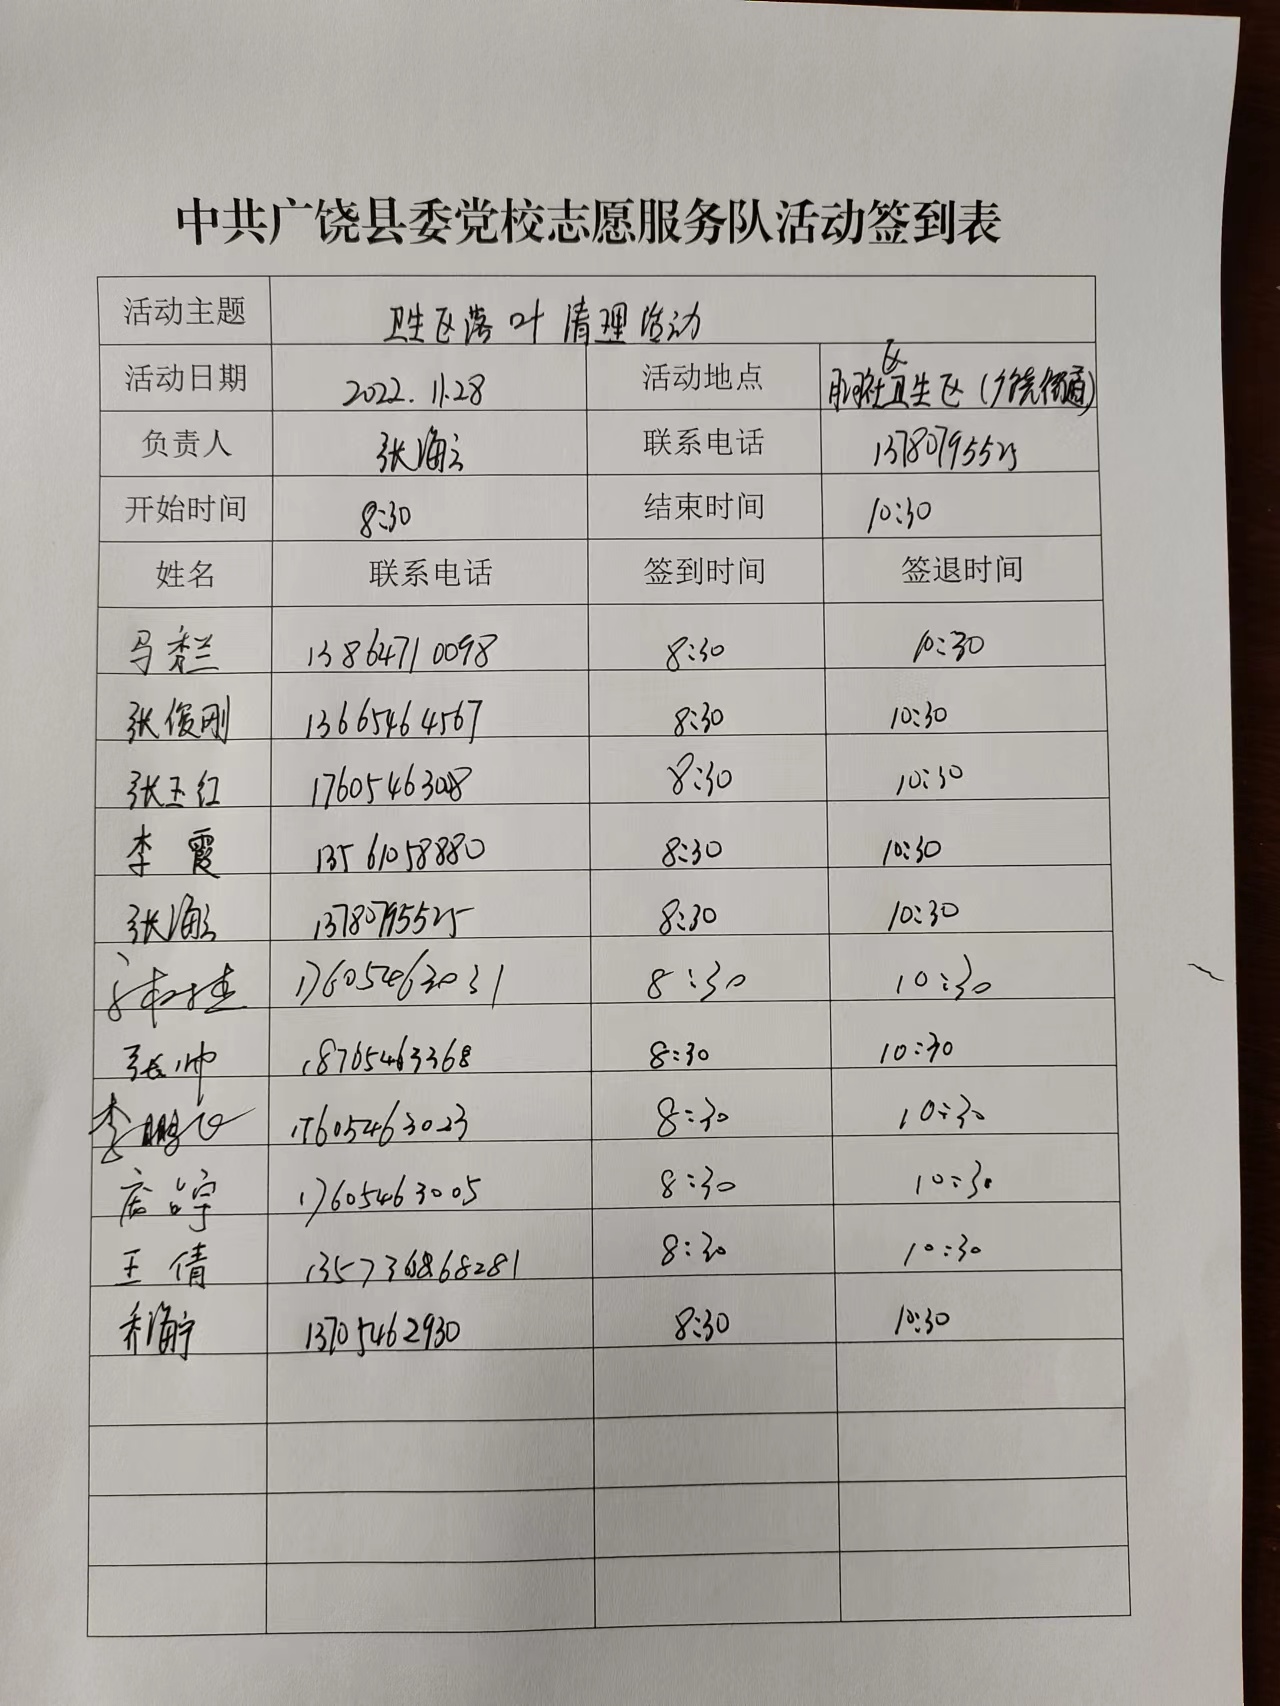 中共广饶县委党校志愿服务队活动签到表
活动主题 卫生区落叶清理活动
活动日期 2022.11.28 活动地点 社区卫生区(广饶街道)
负责人 张海云 联系电话 13780795525
开始时间 8:30 结束时间 10:30
姓名 联系电话 签到时间 签退时间
马秀兰 13864710098 8:30 10:30
张俊刚 13665464567 8:30 10:30
张玉红 17605463008 8:30 10:30
李霞 13561058880 8:30 10:30
张海云 13780795525 8:30 10:30
17605463031 8:30 10:30
张帅 18765463368 8:30 10:30
李鹏飞 17605463023 8:30 10:30
17605463005 8:30 10:30
王倩 8:30 10:30
乔海宁 13705462930 8:30 10:30